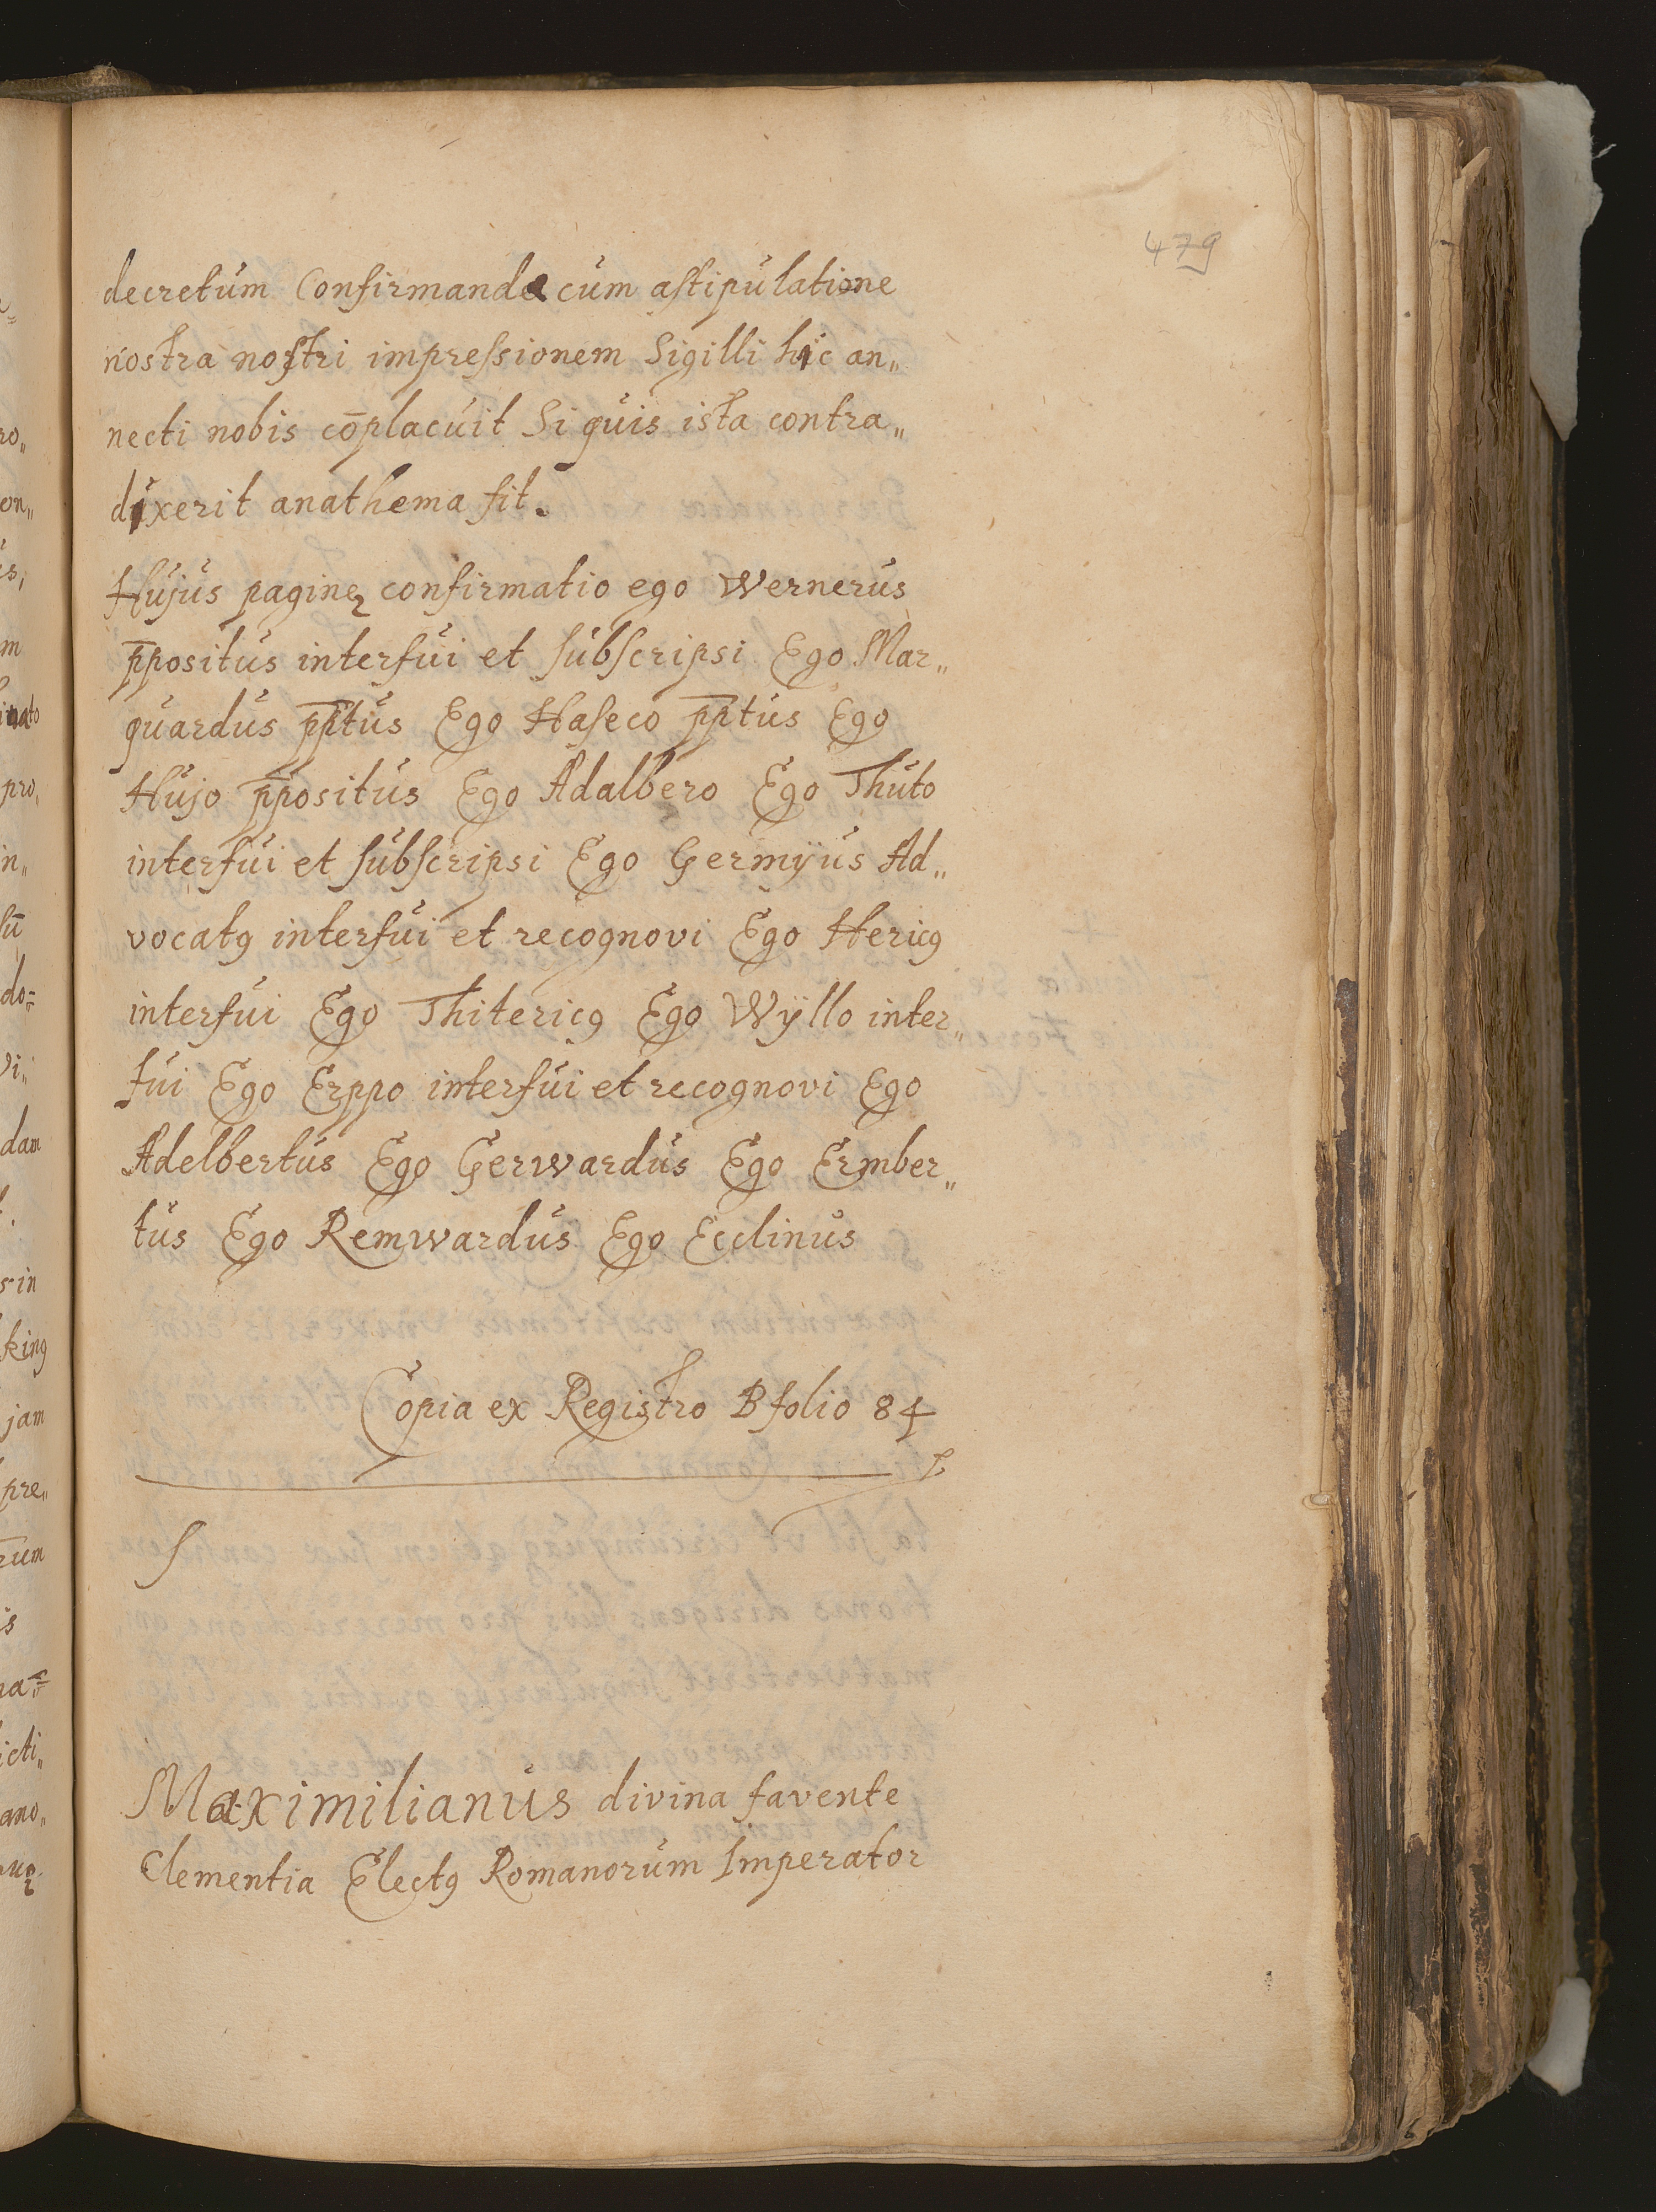 479
decretum Confirmande cum astipulatione
nostra nostri impressionem Sigilli hic an„
necti nobis cōplacuit Si quis ista contra„
dixerit anathema sit.
Hujus paginę confirmatio ego Wernerus
p̄positus interfui et subscripsi Ego Mar„
quardus p̄ptus Ego Haseco p̄ptus Ego
Hujo p̄positus Ego Adalbero Ego Thuto
interfui et subscripsi Ego Germÿus Ad„
vocatꝯ interfui et recognovi Ego Hericꝯ
interfui Ego Thitericꝯ Ego Wÿllo inter„
fui Ego Erppo interfui et recognovi Ego
Adelbertus Ego Gerwardus Ego Ember„
tus Ego Remwardus Ego Ecclinus
Copia ex Registro B folio 84
Maximilianus divina favente
Clementia Electꝯ Romanorum Imperator